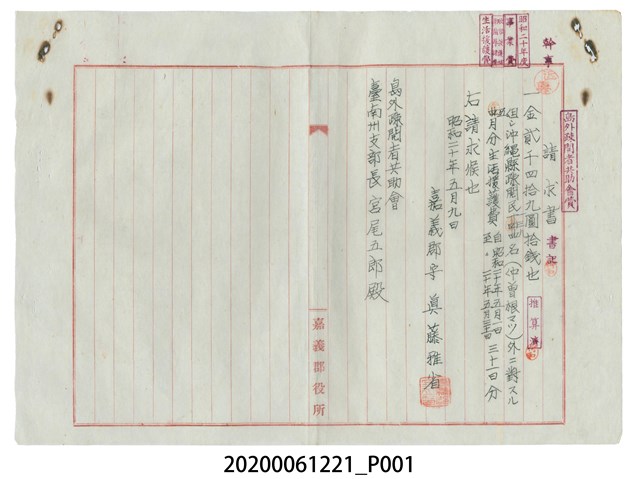 幹事
昭和二十年度
事業費
生活援護費
島外疎開者共助會費
請求書
書記
一金貳千四拾九圓拾錢也
推算濟
但シ沖繩縣疎開民 名(仲曽根マツ)外ニ對スル
五月分生活援護費 自昭和二十年五月一日
至〃二十年五月三十一日 三十一日分
右請求候也
昭和二十年五月九日
嘉義郡守 真藤雅省
島外疎開者共助會
臺南州支部長 宮尾五郎殿
嘉義郡役所
20200061221_P001